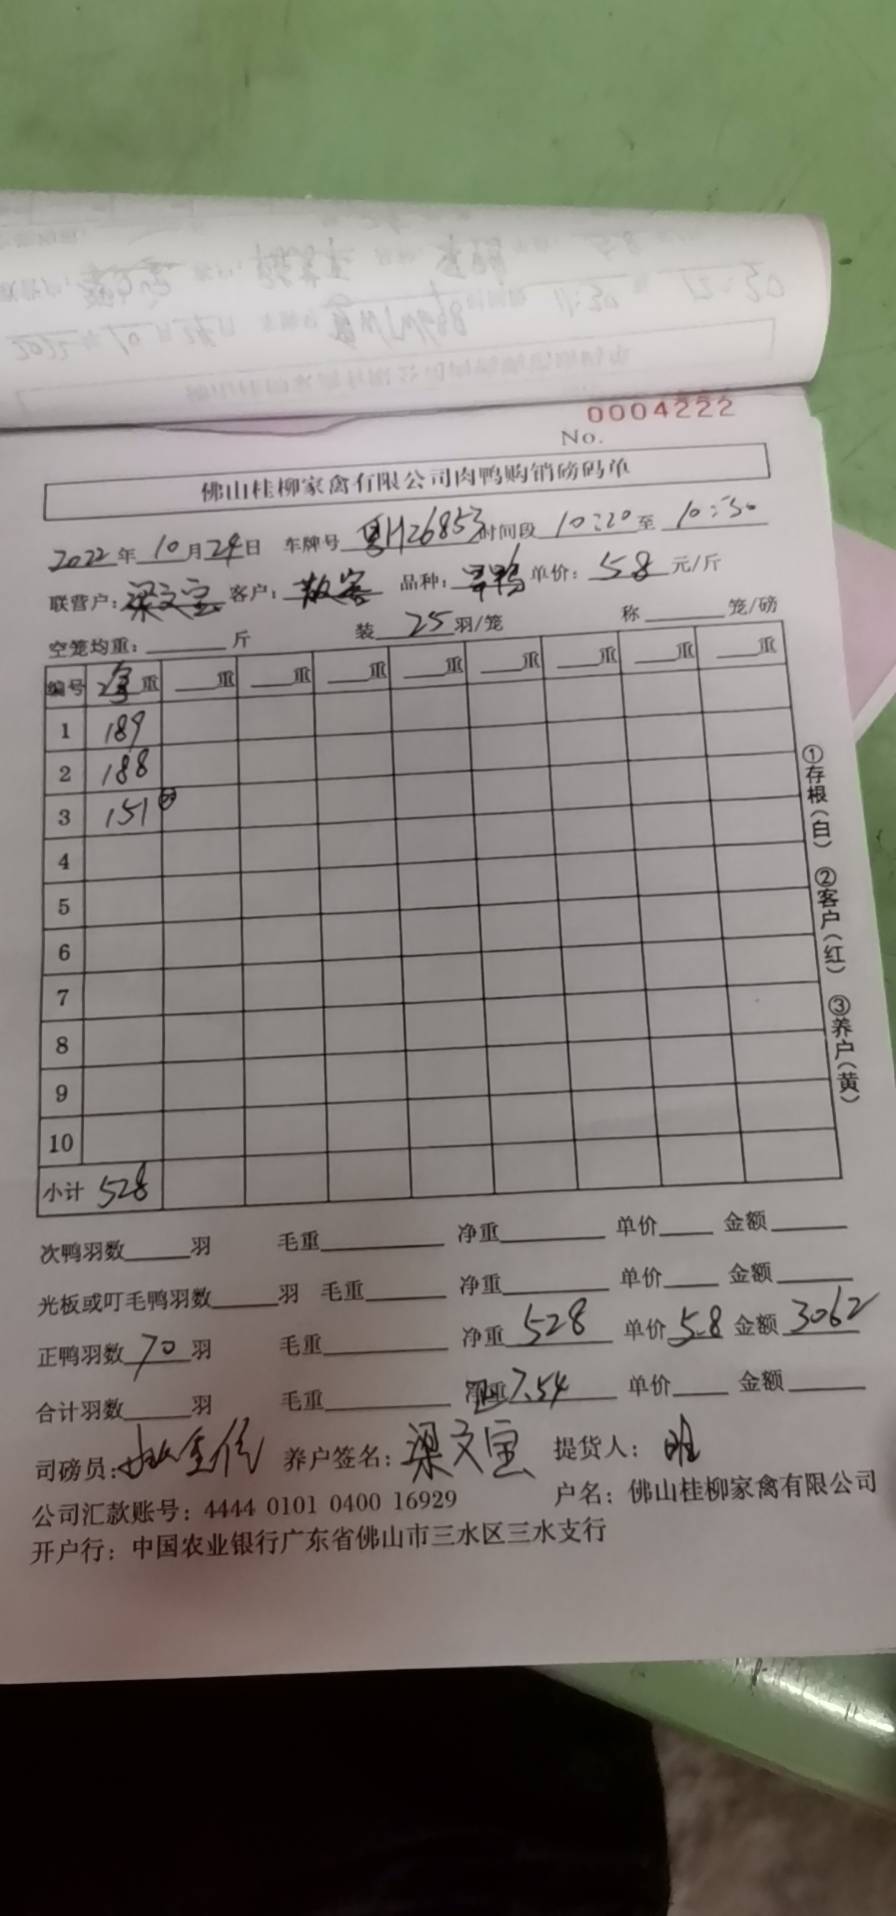 0004222
No.
佛山桂柳家禽有限公司肉鸭购销磅码单
2022年10月24日 车牌号粤H26853时间段10:20至10:30
联营户:梁文宝客户:散客 品种: 单价:5.8元/斤
空笼均重:______斤 装25羽/笼 称______笼/磅
编号 净重 __重 __重 __重 __重 __重 __重 __重 __重
1 189
2 188
3 151 ⑳
4
5
6
7
8
9
10
小计 528
次鸭羽数____羽 毛重____ 净重____ 单价____ 金额____
光板或叮毛鸭羽数____羽 毛重____ 净重____ 单价____ 金额____
正鸭羽数70羽 毛重____ 净重528 单价5.8 金额3062
合计羽数____羽 毛重____ 7.54 单价____ 金额____
司磅员: 养户签名:梁文宝 提货人:
公司汇款账号:4444 0101 0400 16929 户名:佛山桂柳家禽有限公司
开户行:中国农业银行广东省佛山市三水区三水支行
①存根(白) ②客户(红) ③养户(黄)